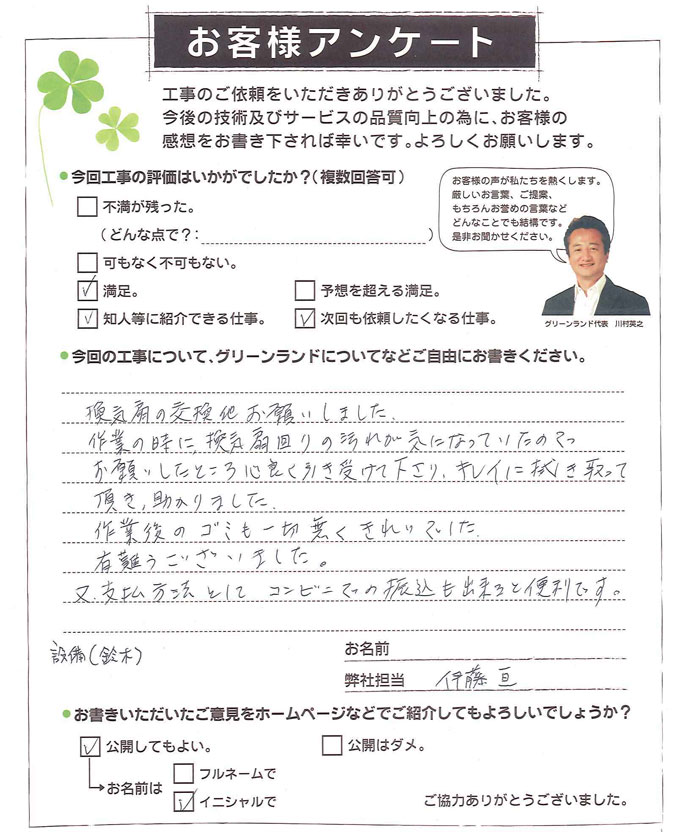 お客様アンケート
工事のご依頼をいただきありがとうございました。
今後の技術及びサービスの品質向上の為に、お客様の
感想をお書き下されば幸いです。よろしくお願いします。
●今回工事の評価はいかがでしたか？（複数回答可）
不満が残った。
（どんな点で？：　）
可もなく不可もない。
満足。
予想を超える満足。
知人等に紹介できる仕事。
次回も依頼したくなる仕事。
お客様の声が私たちを熱くします。
厳しいお言葉、ご提案、
もちろんお誉めの言葉など
どんなことでも結構です。
是非お聞かせください。
グリーンランド代表　川村英之
●今回の工事について、グリーンランドについてなどご自由にお書きください。
換気扇の交換他お願いしました。
作業の時に、換気扇回りの汚れが気になっていたので
お願いしたところ心良く引き受けて下さり、キレイに拭き取って
頂き、助かりました。
作業後のゴミも一切無くきれいでした。
有難うございました。
又、支払方法として コンビニでの振込も出来ると便利です。
設備(鈴木)
お名前
弊社担当　伊藤 亘
●お書きいただいたご意見をホームページなどでご紹介してもよろしいでしょうか？
公開してもよい。
公開はダメ。
お名前は
フルネームで
イニシャルで
ご協力ありがとうございました。